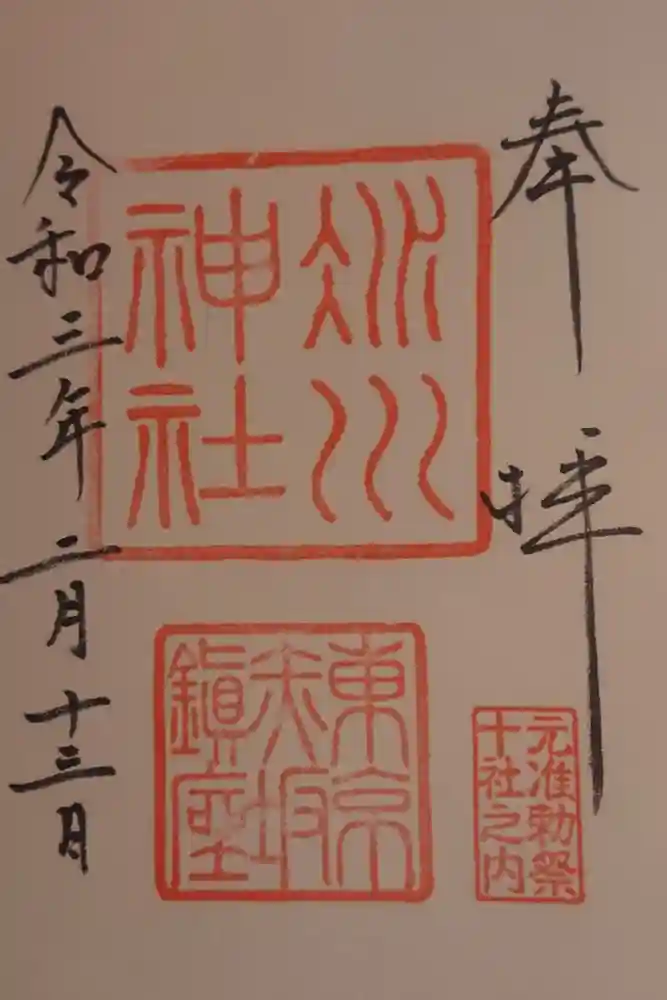 奉拝
氷川
神社
元准勅祭
十社之内
東京
赤坂
鎮座
令和三年二月十三日